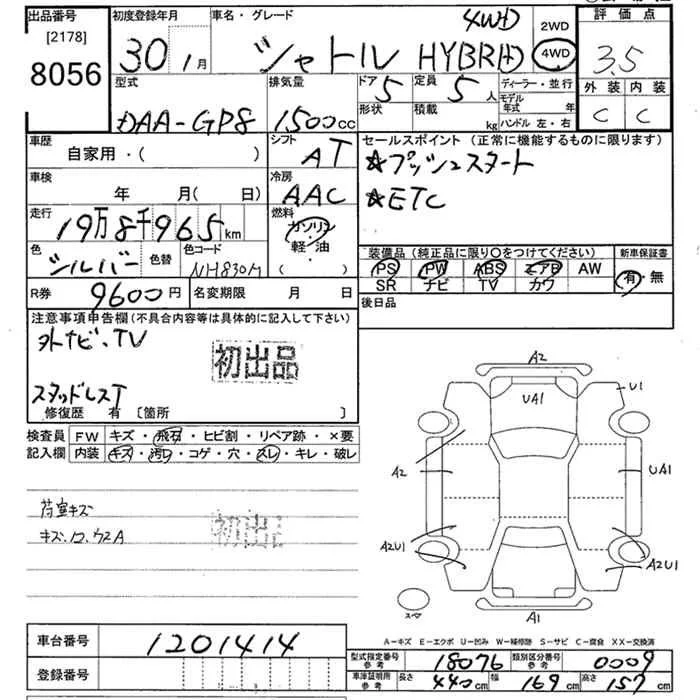 出品番号
[2178]
8056
初度登録年月
30年 1月
車名・グレード
シャトル HYBRID
4WD
2WD
4WD
評価点
3.5
外装 内装
C C
型式
DAA-GP8
排気量
1500cc
ドア 5
形状
定員 5人
積載 kg
ディーラー・並行
モデル年式 年
ハンドル 左・右
車歴
自家用・( )
シフト
AT
セールスポイント (正常に機能するものに限ります)
☆プッシュスタート
☆ETC
車検
年 月( 日)
冷房
AAC
走行
19万8千965km
燃料
ガソリン
軽・油
( )
色
シルバー
色替
色コード
NH830M
装備品 (純正品に限り○をつけてください)
PS PW ABS エアB AW
SR ナビ TV カワ
新車保証書
有・無
R券
9600円
名変期限 月 日
後日品
注意事項申告欄(不具合内容等は具体的に記入して下さい)
外ナビ、TV
初出品
スタッドレスT
修復歴 有 〔箇所 〕
検査員
記入欄
FW キズ・飛石・ヒビ割・リペア跡・×要
内装 キズ・汚レ・コゲ・穴・スレ・キレ・破レ
荷室キズ
初出品
A2
UA1
U1
A2
UA1
A2U1
A2U1
スペア
A1
A-キズ E-エクボ U-凹み W-補修跡 S-サビ C-腐食 XX-交換済
車台番号
1201414
登録番号
型式指定番号
参考
18076
類別区分番号
参考
0009
車庫証明用
参考
長さ 440cm
幅 169cm
高さ 157cm